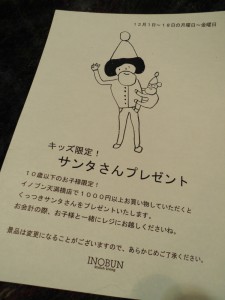 12月1日〜18日の月曜日〜金曜日
キッズ限定！
サンタさんプレゼント
10歳以下のお子様限定！
イノブン天満橋店で1000円以上お買い物していただくと
くっつきサンタさんをプレゼントいたします。
お会計の際、お子様と一緒にレジにお越しくださいね。
景品は変更になることがございますので、あらかじめご了承ください。
INOBUN